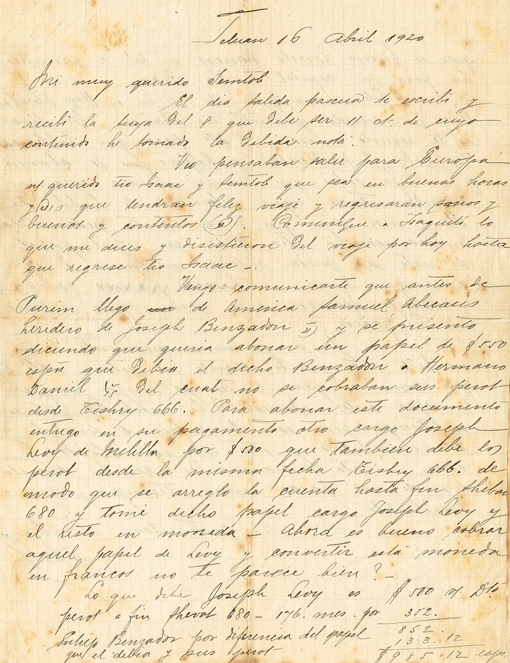 Tetuan 16 Abril 1920
Mi muy querido Semtob
El dia salida pascua te escribi y
recibi la tuya del 8 que debe ser 11 ct. de cuyo
contenido he tomado la debida nota.
Veo pensaban salir para Europa
n/ querido tio Isaac y Semtob que sea en buenas horas
y que tendran feliz viaje y regresaran sanos y
buenos y contentos Comunique a lo
que me dices y disistieron del viaje por hoy hasta
que regrese tio Isaac -.
Vengo comunicarte que antes de
Purim llego de America Samuel Abecasis
heredero de Joseph Benzadon y se presento
diciendo que queria abonar un papel de $ 550
españ que debia el dicho Benzadon a Hermano
Daniel del cual no se cobraban sus perot
desde Tishry 666. Para abonar este documento
entrego en su pagamento otro cargo Joseph
Levy de Melilla por $ 500 que tambien debe los
perot desde la misma fecha Tishry 666. de
modo que se arreglo la cuenta hasta fin Shebat
680 y tome dicho papel cargo Joseph Levy y
el resto en moneda - Ahora es bueno cobrar
aquel papel de Levy y convertir esta moneda
en francos no te parece bien? -
Lo que debe Joseph Levy es $ 500
perot a fin Shevat 680 - 176. mes. por 352.
852.
Entrego Benzadon por diferencia del papel 133.12
que el debia y sus perot $ 985.12 esp.